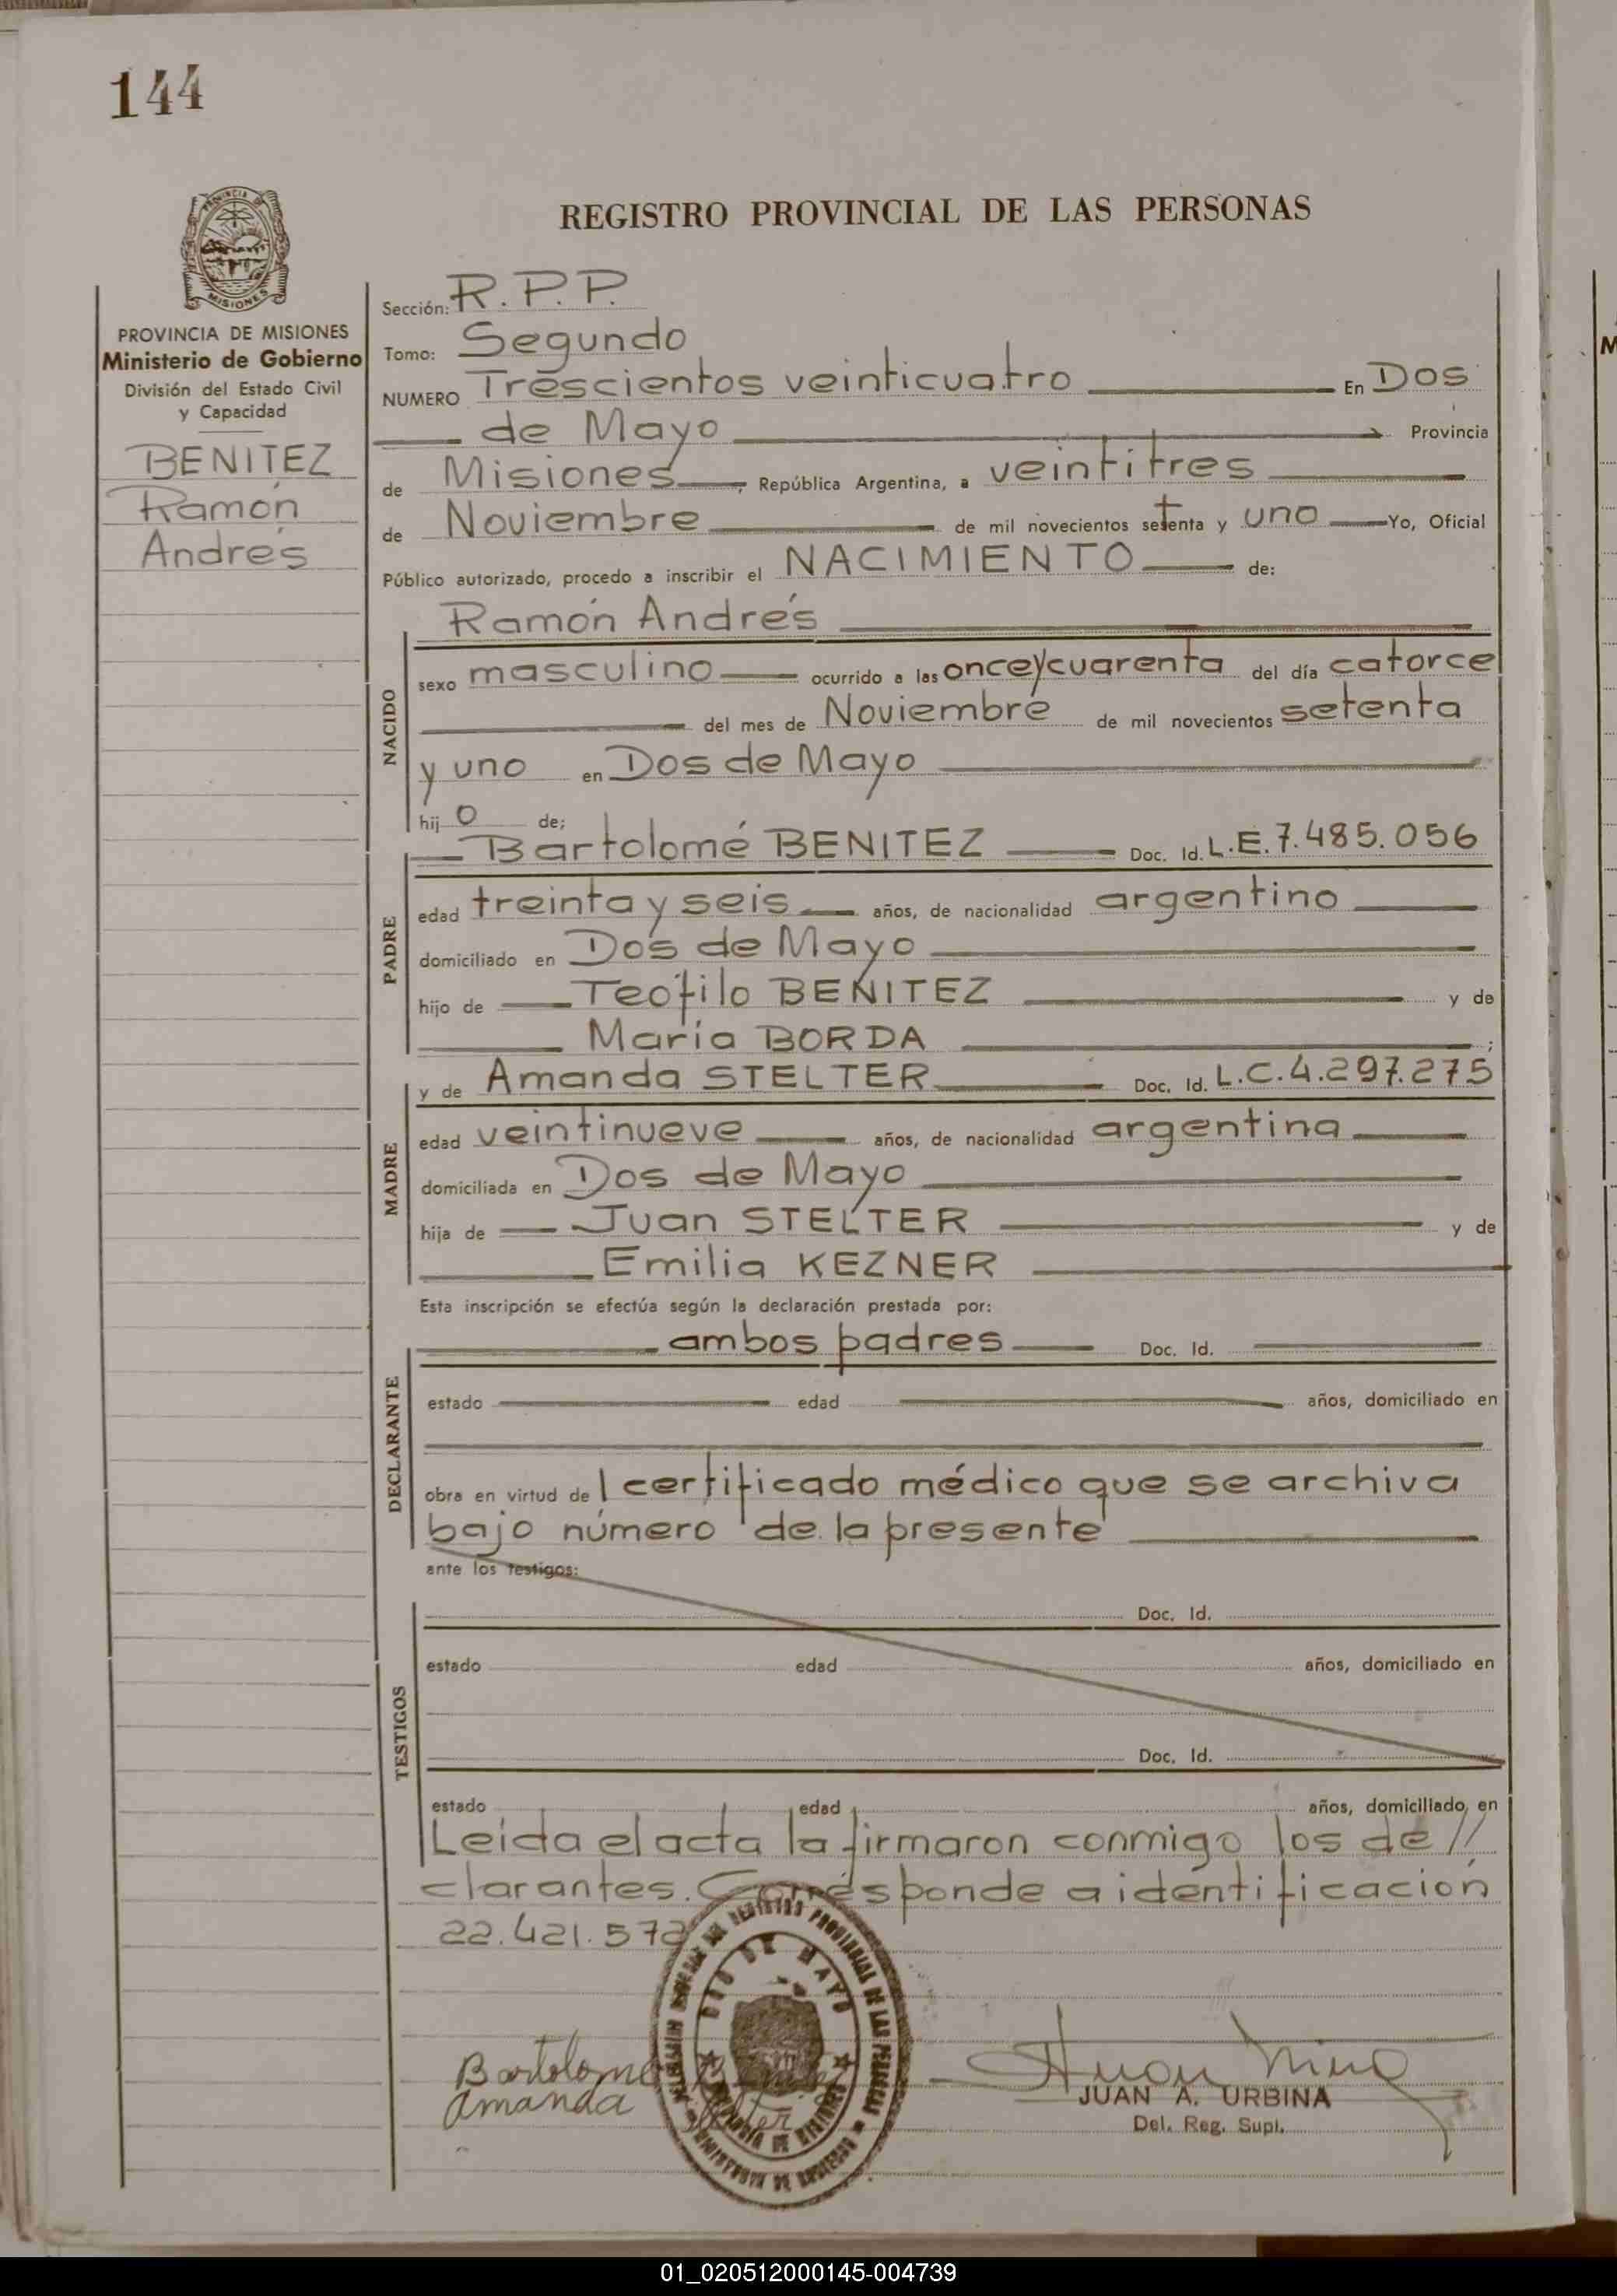 144
PROVINCIA DE MISIONES
REGISTRO PROVINCIAL DE LAS PERSONAS
PROVINCIA DE MISIONES
Ministerio de Gobierno
División del Estado Civil
y Capacidad
BENITEZ
Ramón
Andrés
Sección: R.P.P.
Tomo: Segundo
NUMERO Trescientos veinticuatro En Dos
de Mayo Provincia
de Misiones, República Argentina, a veintitres
de Noviembre de mil novecientos setenta y uno Yo, Oficial
Público autorizado, procedo a inscribir el NACIMIENTO de:
Ramón Andrés
NACIDO
sexo masculino ocurrido a las once y cuarenta del día catorce
del mes de Noviembre de mil novecientos setenta
y uno en Dos de Mayo
hij o de;
PADRE
Bartolomé BENITEZ Doc. Id. L.E. 7.485.056
edad treinta y seis años, de nacionalidad argentino
domiciliado en Dos de Mayo
hijo de Teófilo BENITEZ y de
María BORDA ;
MADRE
y de Amanda STELTER Doc. Id. L.C. 4.297.275
edad veintinueve años, de nacionalidad argentina
domiciliada en Dos de Mayo
hija de Juan STELTER y de
Emilia KEZNER
Esta inscripción se efectúa según la declaración prestada por:
DECLARANTE
ambos padres Doc. Id.
estado edad años, domiciliado en
obra en virtud de l certificado médico que se archiva
bajo número de la presente
ante los testigos:
TESTIGOS
Doc. Id.
estado edad años, domiciliado en
Doc. Id.
estado edad años, domiciliado en
Leida el acta la firmaron conmigo los de //
clarantes. Corresponde a identificación
22.421.572
DOS DE MAYO
REGISTRO PROVINCIAL DE LAS PERSONAS
Bartolome
Amanda Stelter
JUAN A. URBINA
Del. Reg. Supl.
01_020512000145-004739